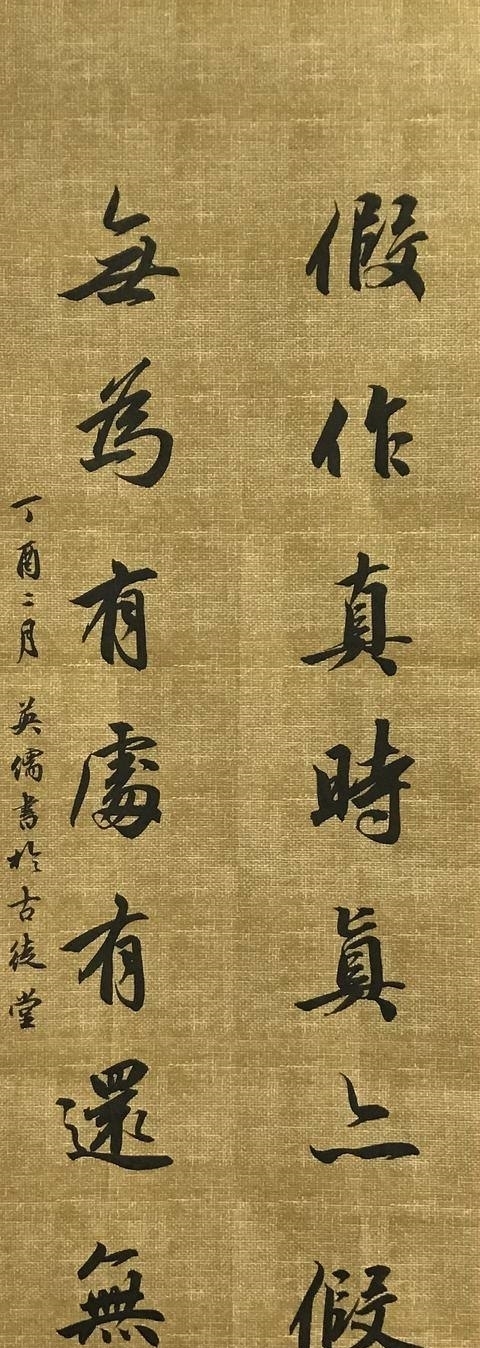 假作真時真亦假
無為有處有還無
丁酉二月 英儒書於古徒堂